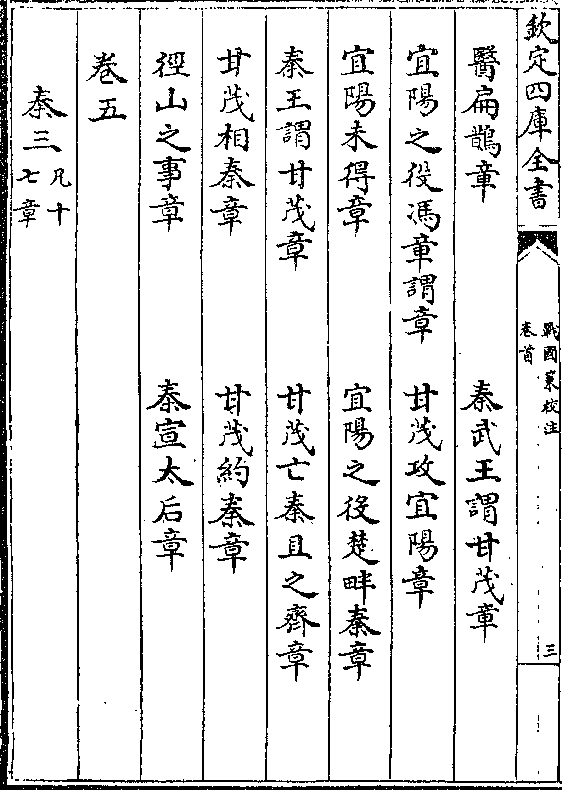 欽定四庫全書
戰國策校注
卷首
三
醫扁鵲章 秦武王謂甘茂章
宜陽之役馮章謂章 甘茂攻宜陽章
宜陽未得章 宜陽之役楚畔秦章
秦王謂甘茂章 甘茂亡秦且之齊章
甘茂相秦章 甘茂約秦章
徑山之事章 秦宣太后章
卷五
秦三凡十七章